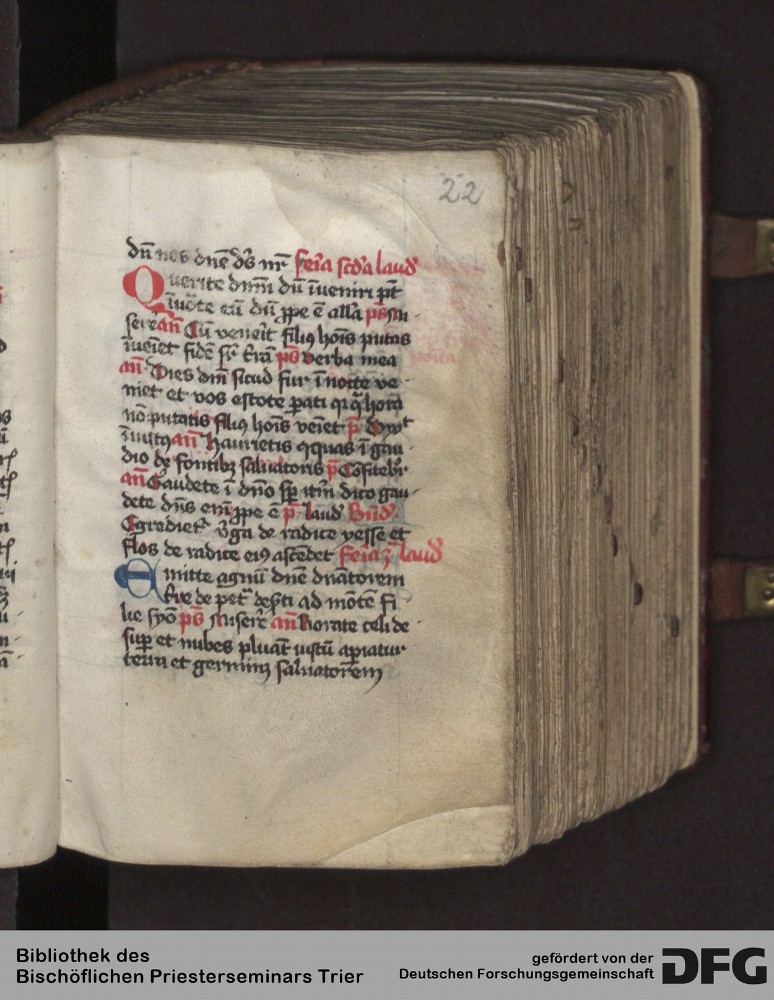 22
dn̄ nos dnē ds̄ nr̄ feīa scd̄a laud᷒
Querite dnm̄ dū īueniri pt̄
īuōte eū dū ꝓpe ē all̄a ps̄ mi-
sere an̄ Cū veneīt filiꝰ hoīs putas
īueīet fidē sr̄ trā ps̄ verba mea
an̄ Dies dnī sicud fur ī nocte ve-
niet et vos estote parati qꝛ q̄ hora
nō putatis filiꝰ hoīs veīet p̄ Dixit
īiustꝰ an̄ haurietis aquas ī gau
dio de fontibꝫ saluatoris p̄ Cōfitebr̄
an̄ Gaudete ī dnō sp̄ itm̄ dico gau-
dete dn̄s em̄ ꝓpe ē p̄ laud᷒ Bn̄d᷒
Egrediet᷑ v̄ga de radice yesse et
flos de radice eiꝰ ascēdet feīa 3ᵃ laud᷒
Emitte agnū dnē dn̄atorem
t̄re de pet᷑ des̄ti ad mōtē fi
lie syō ps̄ Misere᷑ an̄ Rorate celi de-
suꝑ et nubes pluāt iustū apiatur
terra et germinꝫ saluatorem
Bibliothek des
Bischöflichen Priesterseminars Trier
gefördert von der
Deutschen Forschungsgemeinschaft
DFG